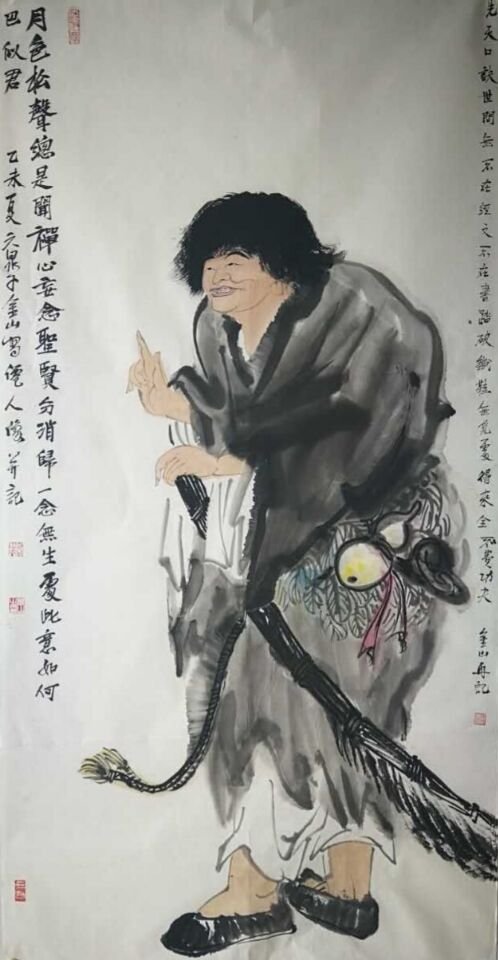 先天口訣世間無不在經文不在書踏破鐵鞋無覓處得來全不費功夫 金山再記
月色松聲總是聞禪心妄念聖賢分消歸一念無生處此意如何
巴似君 乙未夏 泉子金山寫僊人像并記